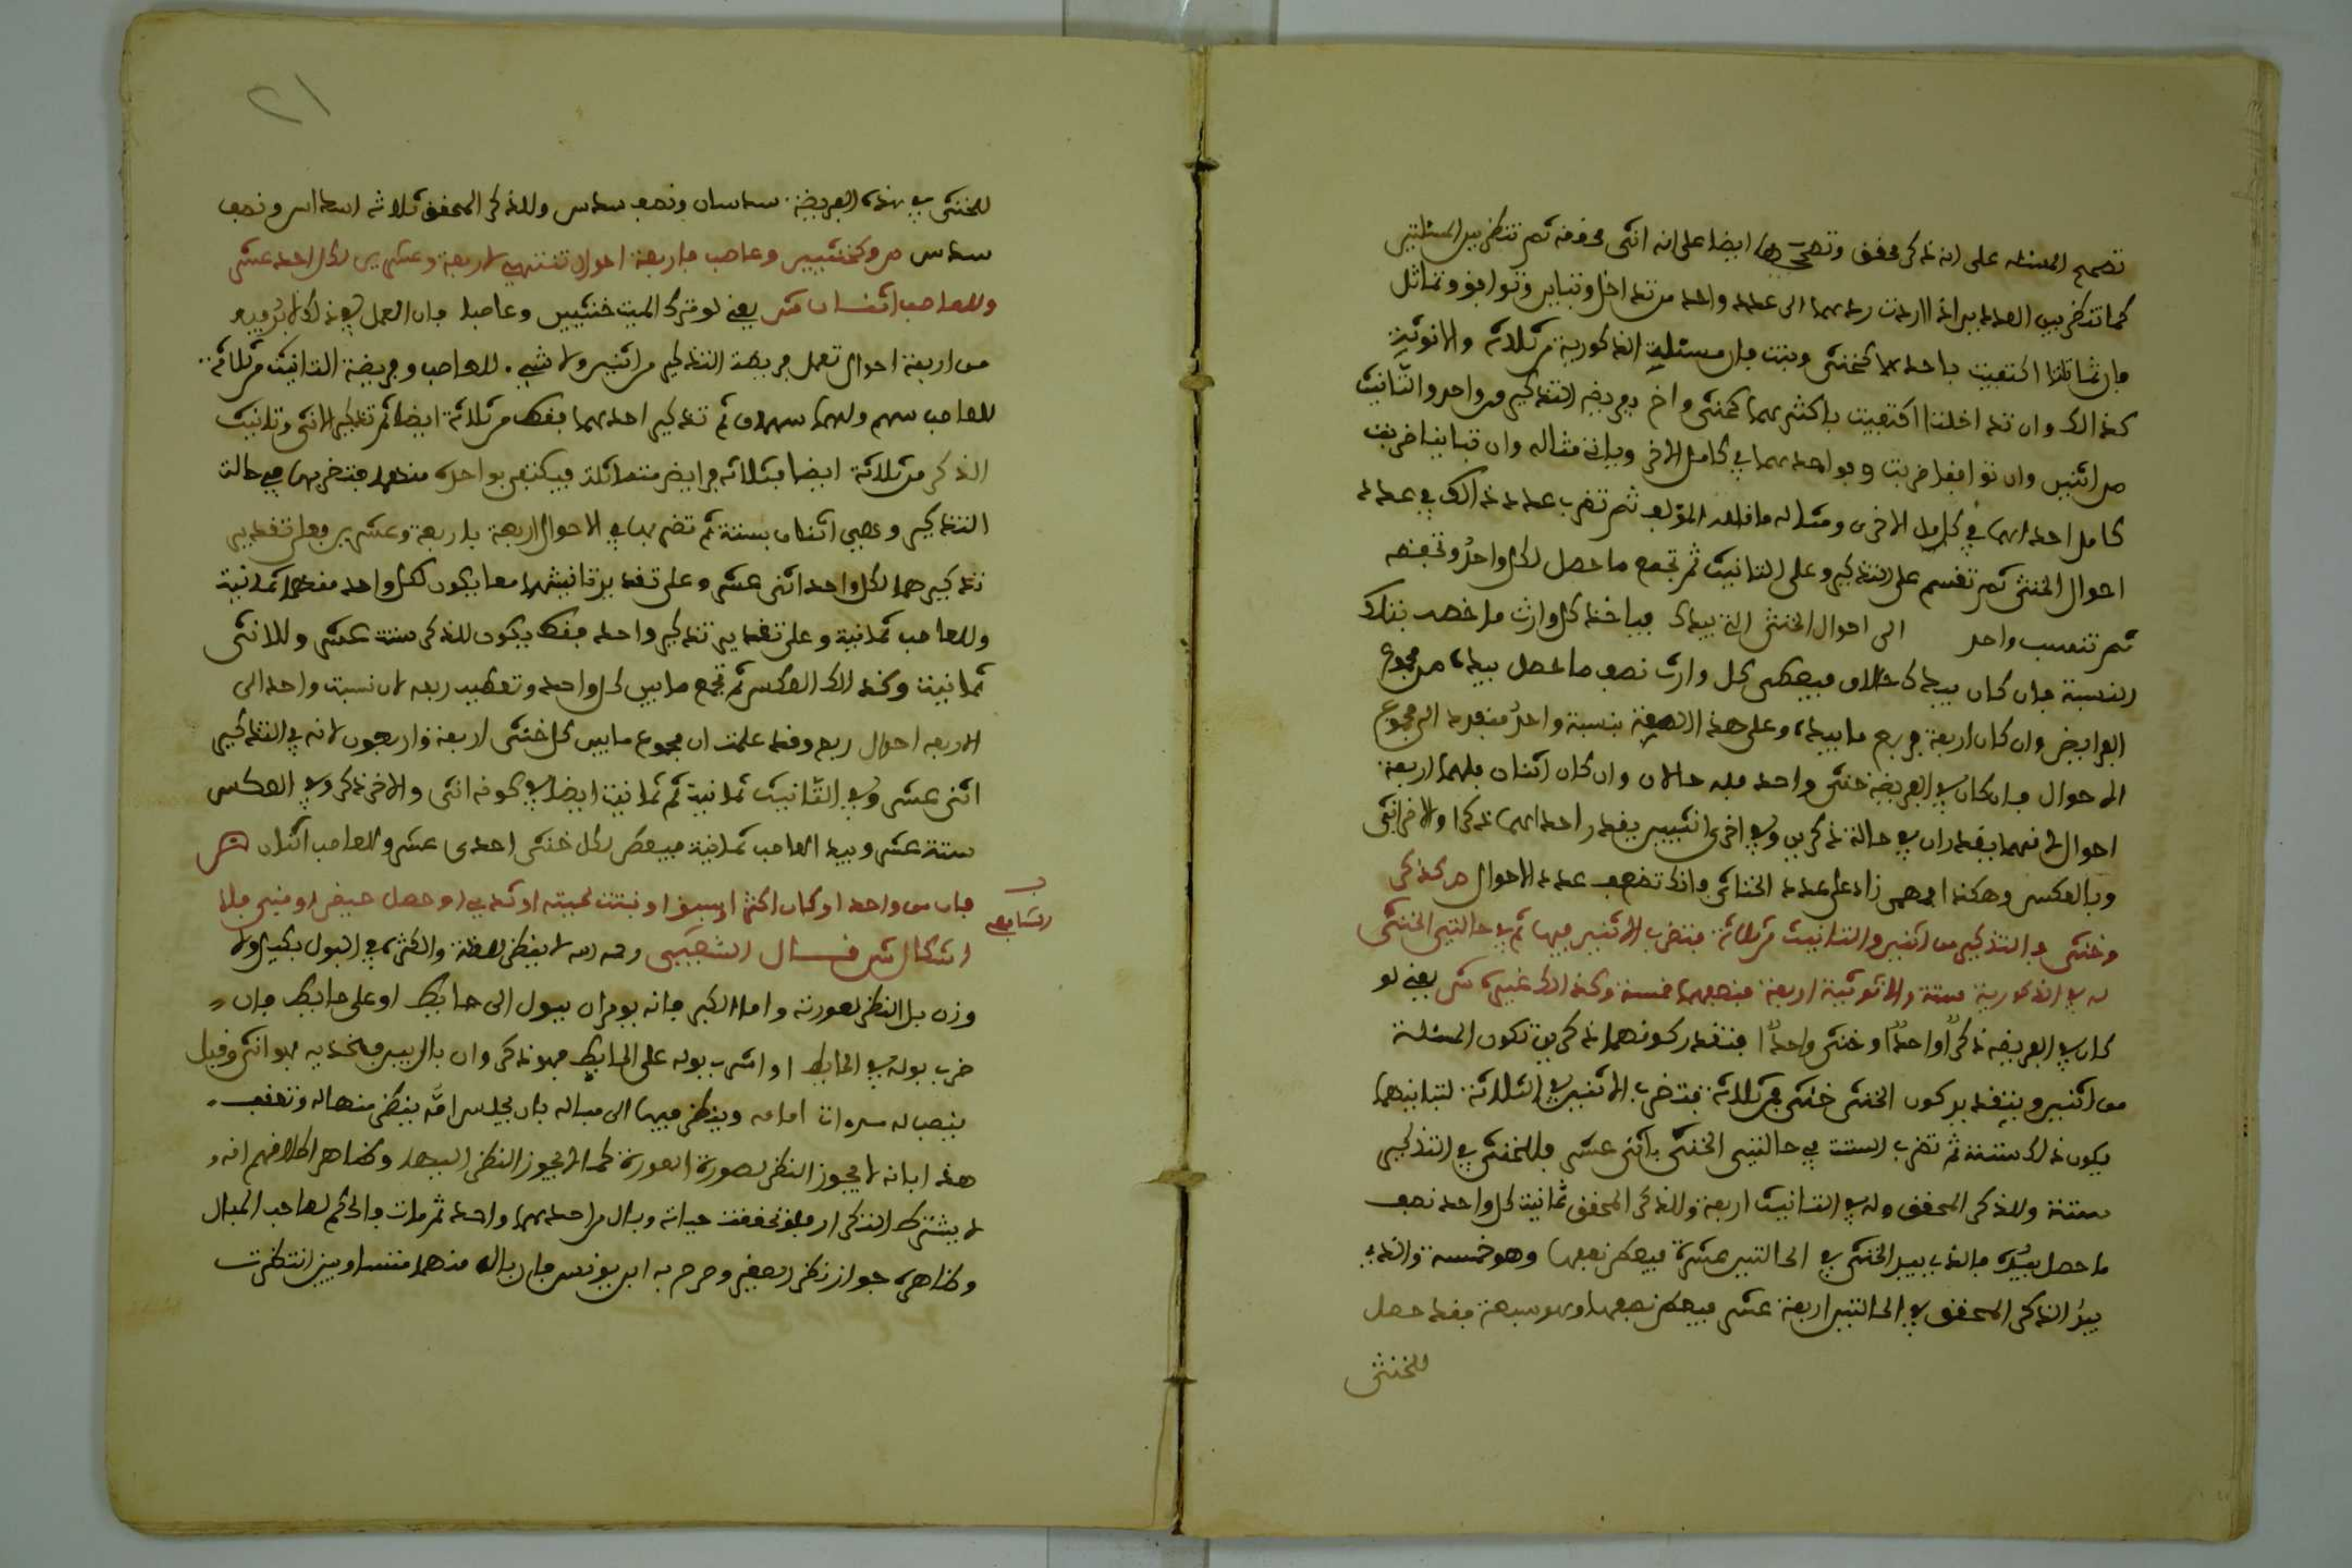 تصحح المسئلة على انه ذكر محقق وتصححها ايضا على انه انثى محققة ثم تنظر بين المسئلتين
كما تنظر بين العددين اذا اردت ردهما الى عدد واحد من تداخل وتباين وتوافق وتماثل
فان تماثلتا اكتفيت باحدهما كخنثى وبنت فان مسئلة الذكورية من ثلاثة والانوثية
كذالك وان تداخلتا اكتفيت باكثرهما كخنثى واخ ففريضة التذكير من واحد والتانيث
من اثنين وان توافقا ضربت وفق احدهما في كامل الاخر وياتي مثاله وان تباينا ضربت
كامل احداهما في كامل الاخرى ومثاله ما قاله المؤلف ثم تضرب عدد ذالك في عدد
احوال الخنثى ثم تقسم على التذكير وعلى التانيث ثم تجمع ما حصل لكل واحد وتحفظه
ثم تنسب واحد الى احوال الخنثى التي بيدك فياخذ كل وارث ما خصه بتلك
النسبة فان كان بيدك حالان فيعطى كل وارث نصف ما حصل بيده من مجموع
الفرايض وان كان اربعة فربع ما بيده وعلى هذه الصفة بنسبة واحد مفرد الى مجموع
الاحوال فان كان في الفريضة خنثى واحد فله حالان وان كان اثنان فلهما اربعة
احوال لانهما يقدران في حالة ذكرين وفي اخرى انثيين يقدر احداهما ذكرا والاخر انثى
وبالعكس وهكذا فمهمى زاد على عدد الخناثى فانك تضعف عدد الاحوال ص كذكر
وخنثى فالتذكير من اثنين والتانيث من ثلاثة فتضرب الاثنين فيها ثم في حالتي الخنثى
له في الذكورية ستة والانوثية اربعة فنصفهما خمسة وكذالك غيره ش يعني لو
كان في الفريضة ذكرا واحدا وخنثى واحدا فتقدر كونهما ذكرين تكون المسئلة
من اثنين وبتقدير كون الخنثى خنثى فمن ثلاثة فتضرب الاثنين في الثلاثة لتباينهما
يكون ذلك ستة ثم تضرب الستة في حالتي الخنثى باثني عشر فللخنثى في التذكير
ستة وللذكر المحقق وله في التانيث اربعة وللذكر المحقق ثمانية لكل واحد نصف
ما حصل بيده فالذي بيد الخنثى في الحالتين عشرة فيعطى نصفها وهو خمسة والذي
بيد الذكر المحقق في الحالتين اربعة عشر فيعطى نصفها وهو سبعة فقد حصل
للخنثى
٢١
للخنثى في هذه الفريضة سدسان ونصف سدس وللذكر المحقق ثلاثة اسداس ونصف
سدس ص وكخنثيين وعاصب فاربعة احوال تنتهي لاربعة وعشرين لكل احد عشر
وللعاصب اثنان ش يعني لو ترك الميت خنثيين وعاصبا فان العمل في ذلك لا بد فيه
من اربعة احوال تعمل فريضة التذكير من اثنين ولا شيء للعاصب وفريضة التانيث من ثلاثة
للعاصب سهم ولهما سهمان ثم تذكير احدهما فقط من ثلاثة ايضا ثم تذكير الانثى وتانيث
الذكر من ثلاثة ايضا فثلاثة فرايض متماثلة فيكتفى بواحدة منها فتضربها في حالة
التذكير وهي اثنان بستة ثم تضربها في الاحوال اربعة باربعة وعشرين فعلى تقدير
تذكيرهما لكل واحد اثنى عشر وعلى تقدير تانيثهما معا يكون لكل واحد منهما ثمانية
وللعاصب ثمانية وعلى تقدير تذكير واحد فقط يكون للذكر ستة عشر وللانثى
ثمانية وكذالك العكس ثم تجمع ما بين كل واحد وتعطيه ربعه لان نسبة واحد الى
الاربعة احوال ربع وقد علمت ان مجموع ما بين كل خنثى اربعة واربعون لانه في التذكير
اثنى عشر وفي التانيث ثمانية ثم ثمانية ايضا في كونه انثى والاخر ذكر وفي العكس
ستة عشر وبيد العاصب ثمانية فيعطى لكل خنثى احدى عشر وللعاصب اثنان ص
فان بال من واحد او كان اكثر او اسبق او نبتت لحيته او ثدي او حصل حيض او مني فلا
اشكال ش قال الشعبي رحمه الله لا ينظر لعظة والكثرة في البول بكيل ولا
وزن بل النظر لعورته واما الكبير فانه يومر ان يبول الى حايط او على حايط فان
ضرب بوله في الحايط او اشرب بوله على الحايط فهو ذكر وان بال بين فخذيه فهو انثى وقيل
ينصب له مراة امامه وينظر فيها الى مباله بان يجلس امامه ينظر منها له وتعقب
هذا بانه لا يجوز النظر لصورة العورة كما لا يجوز النظر اليها وظاهر كلامهم انه
لا يشترط التكرار فلو تحققت حياته وبال من احدهما واحد ثم مات فالحكم لصاحب المبال
وظاهره جواز نظر الصغير وصرح به ابن يونس فان بال منهما متساويين انتظرت
السابعة